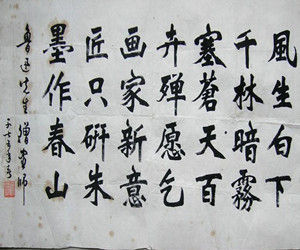 風生白下
千林暗霧
塞蒼天百
卉殫愿乞
画家新意
匠只研朱
墨作春山
魯迅先生贈畫師